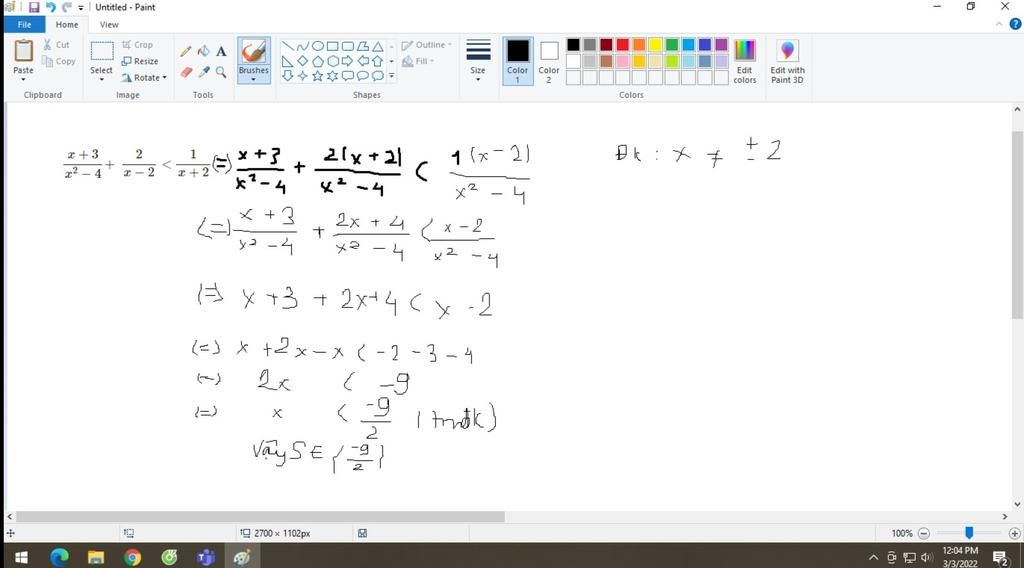 Untitled - Paint
File Home View
Paste Cut Copy Clipboard
Select Crop Resize Rotate Image
Tools
Brushes
Shapes Outline Fill
Size
Color 1 Color 2 Edit colors Colors
Edit with Paint 3D
x + 3 / x² − 4 + 2 / x − 2 < 1 / x + 2 (=) x + 3 / x² − 4 + 2(x + 2) / x² − 4 < 1(x − 2) / x² − 4 Đk : x ≠ ± 2
(=) x + 3 / x² − 4 + 2x + 4 / x² − 4 < x − 2 / x² − 4
(=) x + 3 + 2x + 4 < x − 2
(=) x + 2x − x < − 2 − 3 − 4
(=) 2x < − 9
(=) x < −9 / 2 (tmđk)
Vậy S ∈ {−9 / 2}
2700 × 1102px 100%
12:04 PM
3/3/2022
2